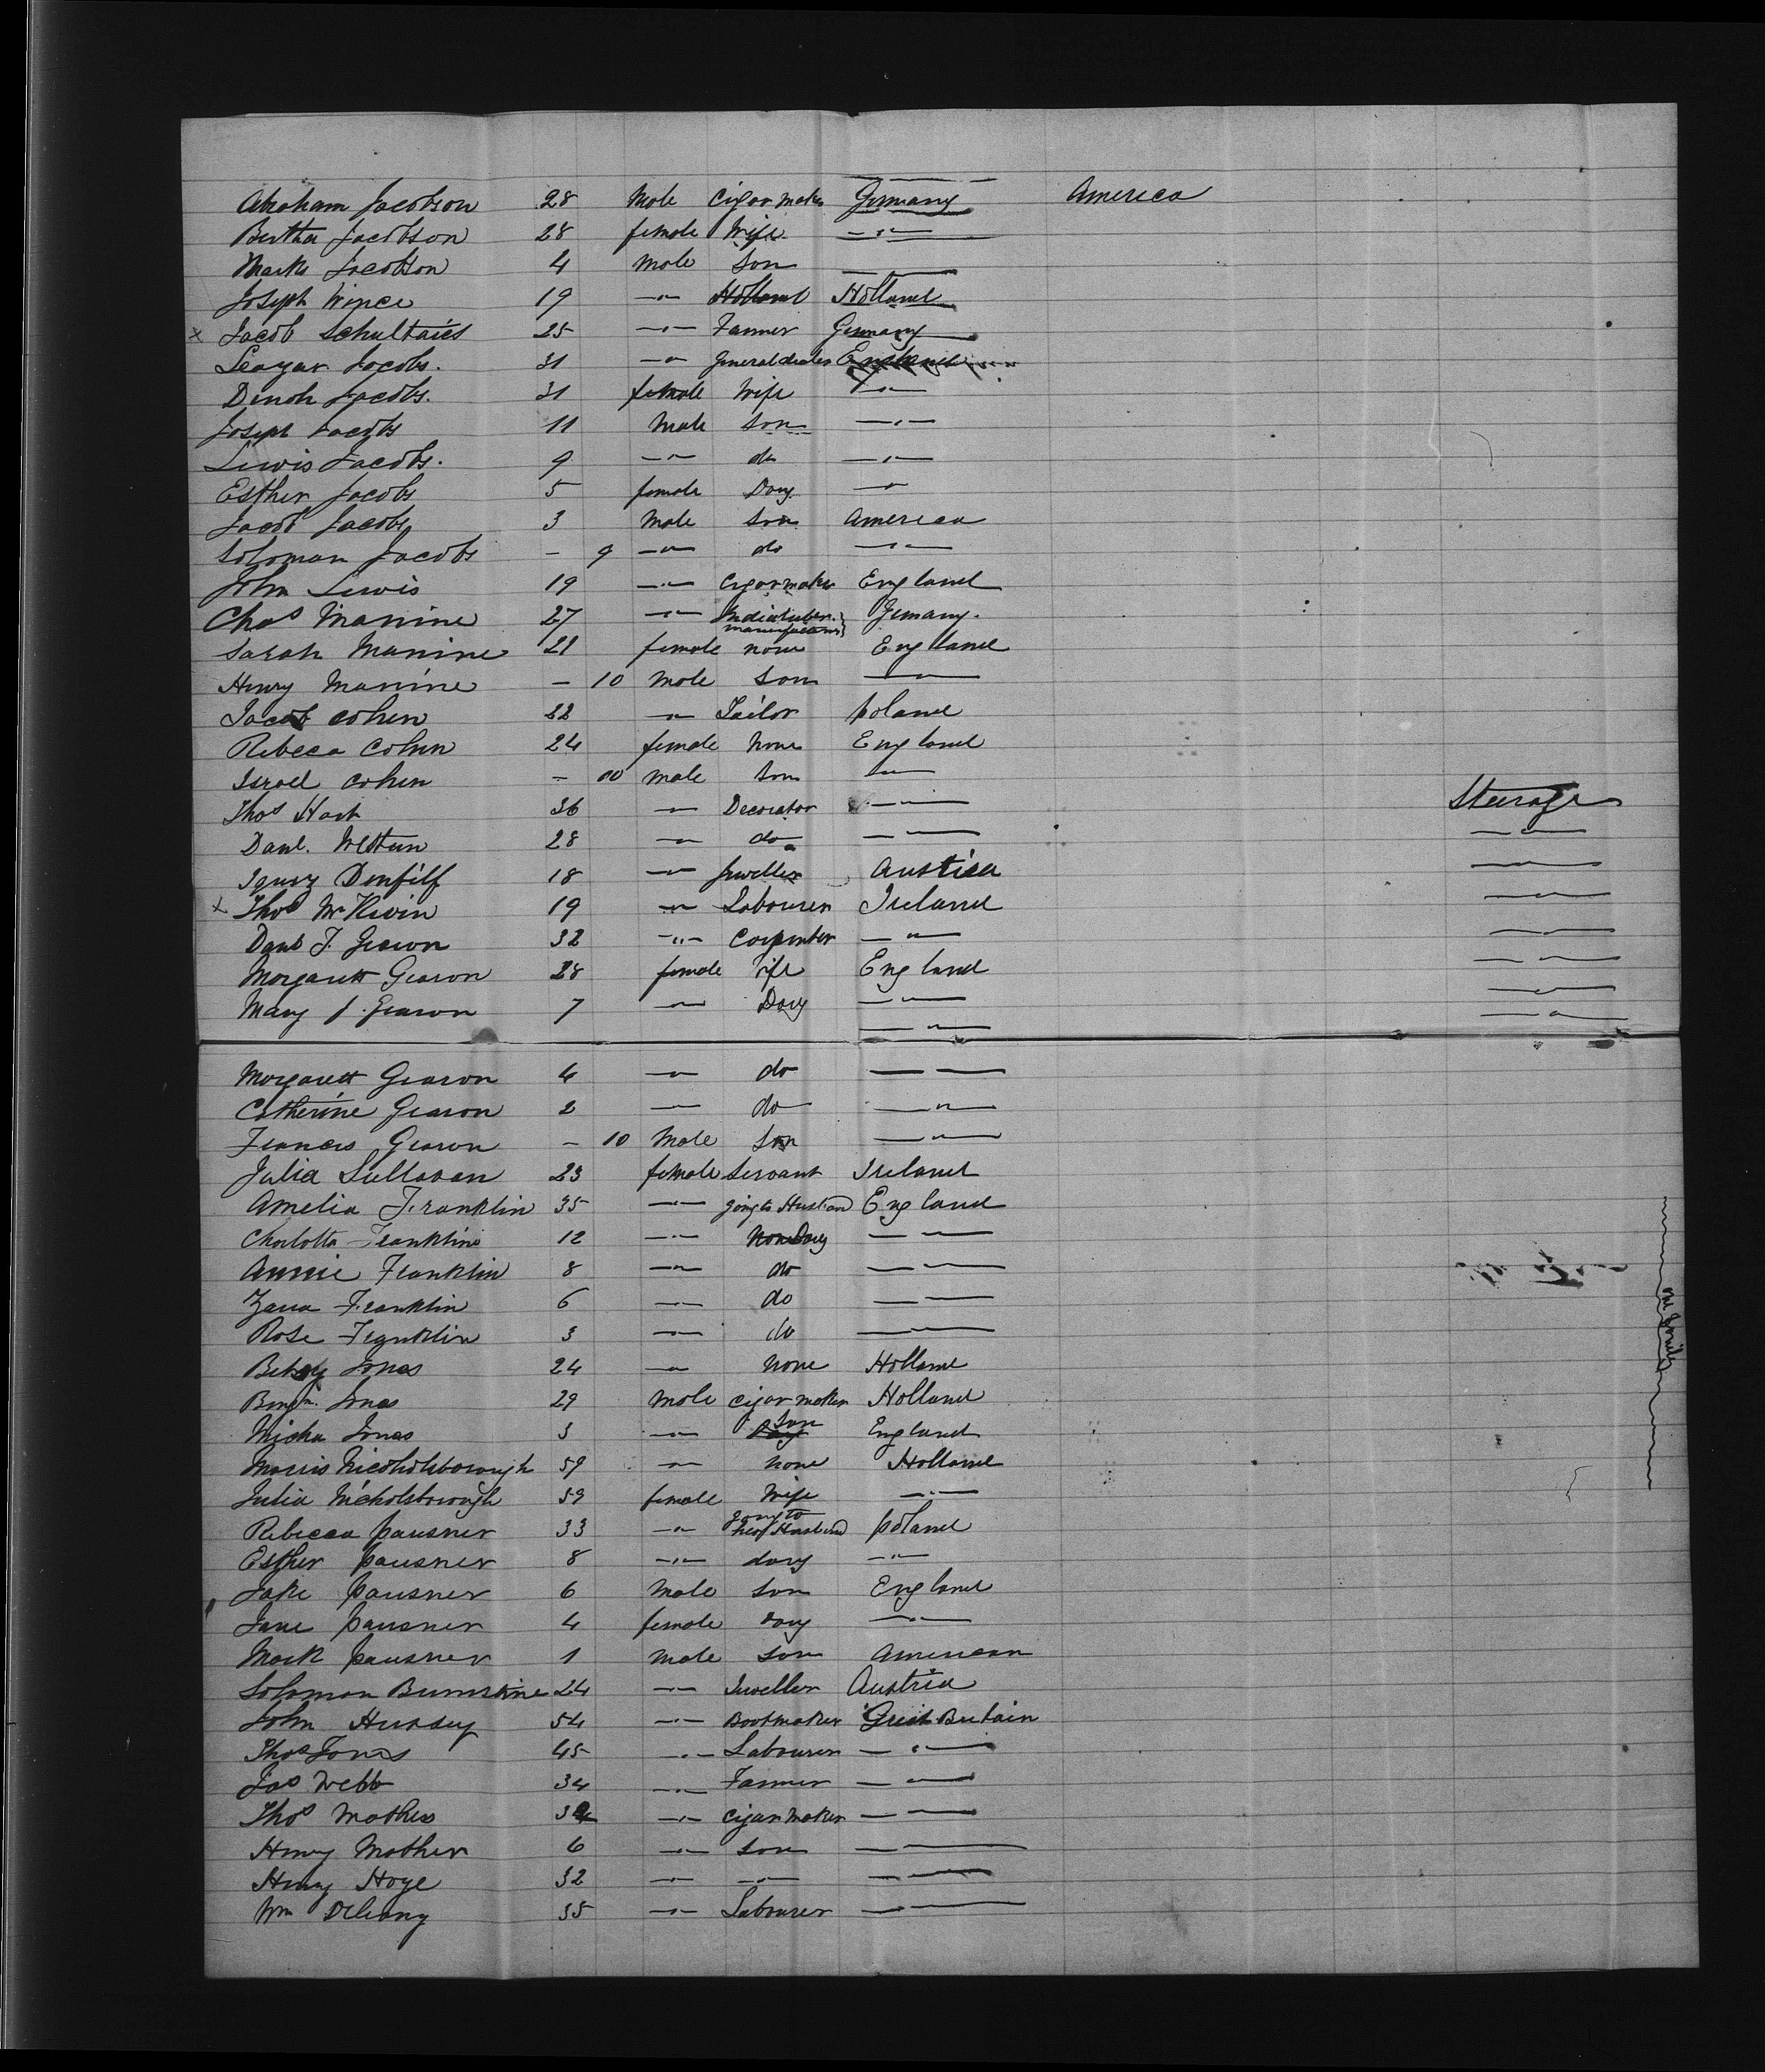 Abraham Jacobson 28 Male Cigar maker Germany America
Bertha Jacobson 28 female Wife —"—
Marks Jacobson 4 Male Son ——
Joseph Wince 19 —"— Holland Holland
x Jacob Schultaies 25 —"— Farmer Germany
Leazar Jacobs. 31 —"— General dealer England
Dinah Jacobs. 31 female Wife —"—
Joseph Jacobs 11 Male Son —"—
Lewis Jacobs. 9 —"— do —"—
Esther Jacobs 5 female Daug —"—
Jacob Jacobs 3 Male Son America
Soloman Jacobs – 9 —"— do —"—
John Lewis 19 —"— Cigar maker England
Chas Manine 27 —"— Indiarubber Germany.
manufacturer
Sarah Manine 21 female none England
Henry Manine – 10 Male Son —"—
Jacob Cohen 22 —"— Tailor Poland
Rebeca Cohen 24 female None England
Israel Cohen – 10 Male Son —"—
Thos Hart 36 —"— Decorator —"— Steerage
Danl. 28 —"— do —"— —"—
Ignaz 18 —"— Jeweller Austria —"—
x Thos McKevin 19 —"— Labourer Ireland —"—
Danl J. Gearon 32 —"— Carpenter —"— —"—
Margarett Gearon 28 female Wife England —"—
Mary J. Gearon 7 —"— Daug —"— —"—
—"— —"—
Margarett Gearon 4 —"— do — —
Catherine Gearon 2 —"— do —"—
Frances Gearon – 10 Male Son —"—
Julia Sullavan 23 female Servant Ireland
Amelia Franklin 35 —"— going to Husband England
Charlotta Franklin 12 —"— None Daug — —
Annie Franklin 8 —"— do — —
Zara Franklin 6 —"— do — —
Rose Franklin 3 —"— do ——
Betsey Jonas 24 —"— None Holland
Benjm. Jonas 29 Male Cigar maker Holland
Micha Jonas 3 —"— Daug Son England
Morris Nicoholsborough 59 —"— none Holland
Julia Nicholsborough 59 female Wife —"—
Rebecca Pausner 33 —"— going to her Husband Poland
Esther Pausner 8 —"— daug —"—
Jake Pausner 6 Male Son England
Jane Pausner 4 female Daug —"—
Mark Pausner 1 Male Son American
Solomon Burnstine 24 —"— Jeweller Austria
John Hussey 54 —"— Bootmaker Great Britain
Thos Jones 45 —"— Labourer —"—
Jas Webb 34 —"— Farmer —"—
Thos Mather 32 —"— Cigar maker —"—
Henry Mather 6 —"— Son ——
Henry Hoye 32 —"— —"— ——
Wm Delany 35 —"— Labourer ——
one family